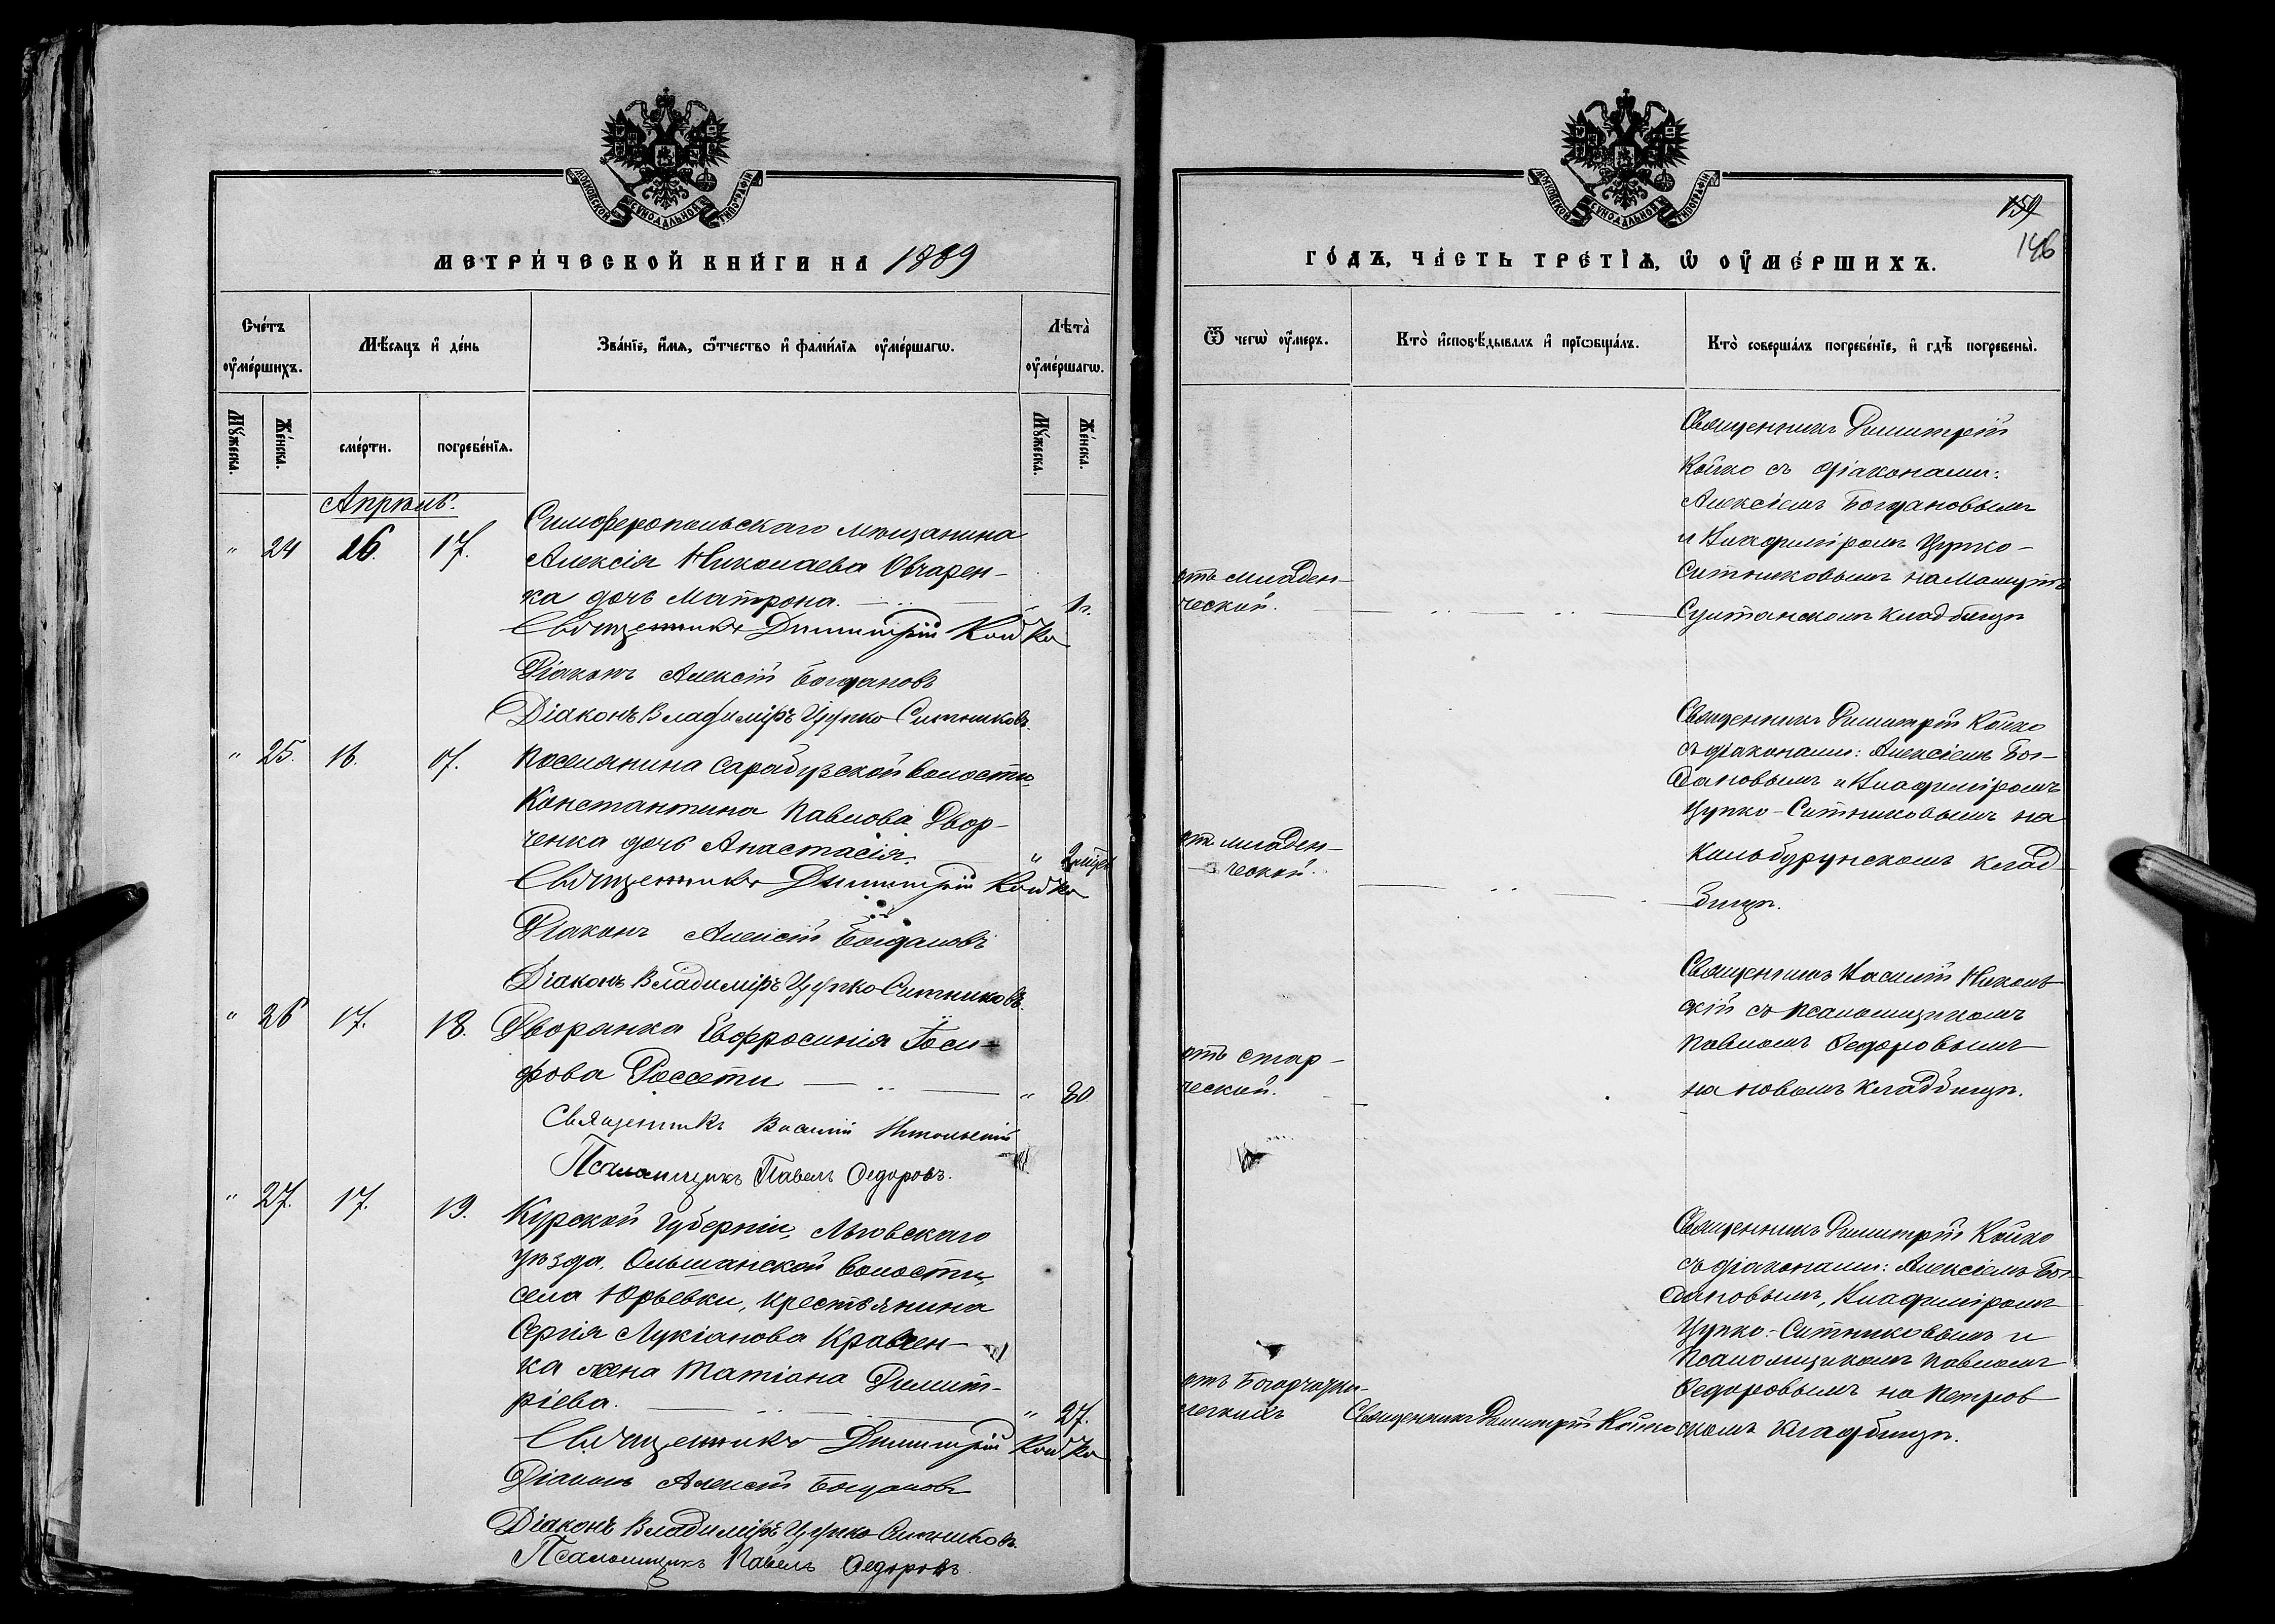 МОСКОВСКОЙ СѴНОДАЛЬНОЙ ТИПОГРАФІИ
МЕТРИ́ЧЕСКОЙ КНИ́ГИ НА 1889
Сче́тъ оу҆ме́ршихъ.
Мѣ́сѧцъ и҆ де́нь
Зва́нїе, и҆́мѧ, ѻ҆́тчество и҆ фамі́лїѧ оу҆ме́ршагѡ.
Лѣ́та оу҆ме́ршагѡ.
Мꙋ́жеска.
Же́нска.
сме́рти.
погребе́нїѧ.
Мꙋ́жеска.
Же́нска.
Апрѣль.
" 24 16. 17. Симферопольскаго мѣщанина
Алексія Николаева Овчарен-
ка дочь Матрона. " 1 г.
Священникъ Димитрій Койко
Діаконъ Алексій Богдановъ
Діаконъ Владиміръ Цупко-Ситниковъ.
" 25. 16. 17. Поселянина Сарабузской волости,
Константина Павлова Двор-
ченка дочь Анастасія. " 2 мѣс.
Священникъ Димитрій Койко
Діаконъ Алексій Богдановъ
Діаконъ Владиміръ Цупко-Ситниковъ.
" 26 17. 18. Дворянка Евфросинія Іоси-
фова Россети " 80
Священникъ Василій Никольскій
Псаломщикъ Павелъ Ѳедоровъ.
" 27. 17. 19. Курской губерніи, Льговскаго
уѣзда, Ольшанской волости,
села Юрьевки, крестьянина
Сергія Лукіанова Кравчен-
ка жена Татіана Димит-
ріева. " 27.
Священникъ Димитрій Койко
Діаконъ Алексій Богдановъ
Діаконъ Владиміръ Цупко-Ситниковъ.
Псаломщикъ Павелъ Ѳедоровъ.
МОСКОВСКОЙ СѴНОДАЛЬНОЙ ТИПОГРАФІИ
159
146
ГО́ДЪ, ЧА́СТЬ ТРЕ́ТЇѦ, Ѡ҆ ОУ҆МЕ́РШИХЪ.
Ѿ чегѡ̀ оу҆́меръ.
Кто̀ и҆сповѣ́дывалъ и҆ прїѡбща́лъ.
Кто̀ соверша́лъ погребе́нїе, и҆ гдѣ̀ погребены̀.
отъ младен-
ческой.
Священникъ Димитрій
Койко съ діаконами:
Алексіемъ Богдановымъ
и Владиміромъ Цупко-
Ситниковымъ на Мамутъ
Султанскомъ кладбищѣ
отъ младен-
ческой.
Священникъ Димитрій Койко
съ діаконами: Алексіемъ Бог-
дановымъ и Владиміромъ
Цупко-Ситниковымъ на
Кильбурунскомъ клад-
бищѣ.
отъ стар-
ческой.
Священникъ Василій Николь-
скій съ псаломщикомъ
Павломъ Ѳедоровымъ
на новомъ кладбищѣ.
легкихъ
Священникъ Димитрій Койко
Священникъ Димитрій Койко
съ діаконами: Алексіемъ Бог-
дановымъ, Владиміромъ
Цупко-Ситниковымъ и
псаломщикомъ Павломъ
Ѳедоровымъ на Петров
скомъ кладбищѣ.